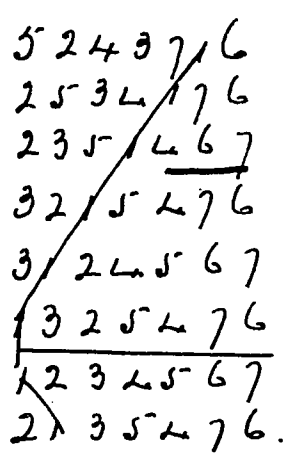 5 2 4 3 7 1 6
2 5 3 4 1 7 6
2 3 5 1 4 6 7
3 2 1 5 4 7 6
3 1 2 4 5 6 7
1 3 2 5 4 7 6
1 2 3 4 5 6 7
2 1 3 5 4 7 6 .